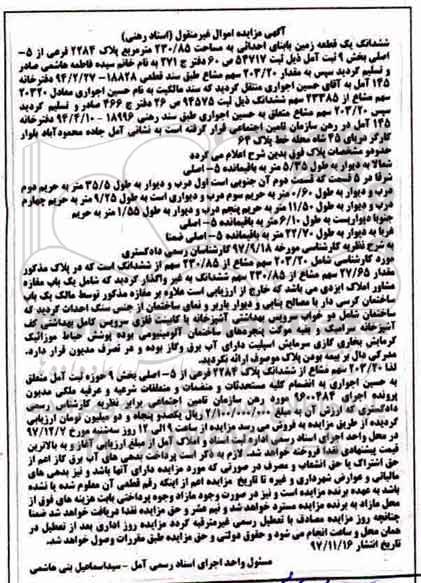 آگهی مزایده اموال غیرمنقول (اسناد رهنی)
ششدانگ یک قطعه زمین بابنای احداثی به مساحت ۲۳۰/۸۵ مترمربع پلاک ۲۲۸۴ فرعی از ۵-
اصلی بخش ۹ ثبت آمل ذیل ثبت ۵۴۷۱۷ ص ۶۰ دفتر ج ۲۷۱ به نام خانم سیده فاطمه هاشمی صادر
و تسلیم گردید سپس به مقدار ۲۰۳/۲۰ سهم مشاع طبق سند قطعی ۱۸۸۲۸- ۹۴/۲/۲۷ دفترخانه
۱۴۵ آمل به آقای حسین اجواری منتقل گردید که سند مالکیت به نام حسین اجواری معادل ۲۰۳۲۰
سهم مشاع از ۲۳۳۸۵ سهم ششدانگ ذیل ثبت ۹۴۵۷۵ ص ۲۶ دفتر ج ۴۶۶ صادر و تسلیم گردید
سپس ۲۰۳/۲۰ سهم مشاع متعلق به حسین اجواری طبق سند رهنی ۱۸۹۹۶ - ۹۴/۴/۱۰ دفترخانه
۱۴۵ آمل در رهن سازمان تامین اجتماعی قرار گرفته است به نشانی آمل جاده محمودآباد بلوار
کارگر دریای ۴۵ شاه محله خط پلاک ۶۴
حدود مشخصات پلاک فوق بدین شرح اعلام می گردد
شمالا به دیوار به طول ۵/۳۵ متر به باقیمانده ۵- اصلی
شرقا در ۵ قسمت که قسمت دوم آن جنوبی است اول درب و دیوار به طول ۳۵/۵ متر به حریم دوم
درب و دیوار به طول ۰/۶۰ متر به حریم سوم درب و دیواری است به طول ۹/۲۵ متر به حریم چهارم
درب و دیوار به طول ۱۱/۵۰ متر به حریم پنجم درب و دیوار به طول ۱/۵۵ متر به حریم
جنوبا دیواریست به طول ۶/۱۰ متر به باقیمانده ۵- اصلی
غربا به دیوار به طول ۲۲/۷۰ متر به باقیمانده ۵- اصلی ضمنا
به شرح نظریه کارشناسی مورخه ۹۷/۹/۱۸ کارشناسان رسمی دادگستری
مورد کارشناسی شامل ۲۰۳/۲۰ سهم مشاع از ۲۳۰/۸۵ سهم از ششدانگ است که در پلاک مذکور
مقدار ۲۷/۶۵ سهم مشاع از ۲۳۰/۸۵ سهم ششدانگ به غیر واگذار گردید که شامل یک باب مغازه
مشاور املاک ایزدی می باشد که خارج از ارزیابی است علاوه بر مغازه مذکور توسط مالک یک باب
ساختمان کرسی دار با مصالح بنایی و دیوار باربر و نمای ساختمان از جنس سنگ احداث گردید که
ساختمان شامل دو خواب سرویس بهداشتی آشپزخانه با کابینت فلزی سرویس کامل بهداشتی کف
آشپزخانه سرامیک و بقیه موکت پنجره‌های ساختمان آلومینیومی بوده پوشش حیاط موزائیک
گرمایش بخاری گازی سرمایش اسپلیت دارای آب برق وگاز بوده و در تصرف مدیون قرار دارد.
مدرکی دال بر بیمه بودن پلاک موصوف ارائه نگردید.
لذا ۲۰۳/۲۰ سهم مشاع از ششدانگ پلاک ۲۲۸۴ فرعی از ۵- اصلی بخش ۹ حوزه ثبت آمل متعلق
به حسین اجواری به انضمام کلیه مستحدثات و منضمات و متعلقات شرعیه و عرفیه ملکی مدیون
پرونده اجرای ۹۶۰۰۴۸۴ مورد رهن سازمان تامین اجتماعی برابر نظریه کارشناس رسمی
دادگستری که ارزش آن به مبلغ ۲/۱۰۰/۰۰۰/۰۰۰ ریال یکصدو پنجاه و دو میلیون تومان ارزیابی
گردیده از طریق مزایده به فروش می رسد مزایده از ساعت ۹ الی ۱۲ روز سه‌شنبه مورخ ۹۷/۱۲/۷
در محل واحد اجرای اسناد رسمی اداره ثبت اسناد و املاک آمل از مبلغ ارزیابی آغاز و به بالاترین
قیمت پیشنهادی نقدا فروخته خواهد شد. لازم به ذکر است پرداخت بدهی های آب برق گاز اعم از
حق اشتراک یا حق انشعاب و مصرف در صورتی که مورد مزایده دارای آنها باشد و نیز بدهی های
مالیاتی و عوارض شهرداری و غیره تا تاریخ مزایده اعم از اینکه رقم قطعی آن معلوم شده یا نشده
باشد به عهده برنده مزایده است و نیز در صورت وجود مازاد وجوه پرداختی بابت هزینه های فوق از
محل مازاد به برنده مزایده مسترد خواهد شد و نیم عشر و حق مزایده نقدا دریافت خواهد شد ضمنا
چنانچه روز مزایده مصادف با تعطیل رسمی غیرمترقبه گردد مزایده روز اداری بعد از تعطیل در
همان محل و ساعت انجام می شود و حقوق دولتی و حق مزایده طبق مقررات وصول خواهد شد.
تاریخ انتشار ۹۷/۱۱/۱۶
مسئول واحد اجرای اسناد رسمی آمل - سیداسماعیل بنی هاشمی